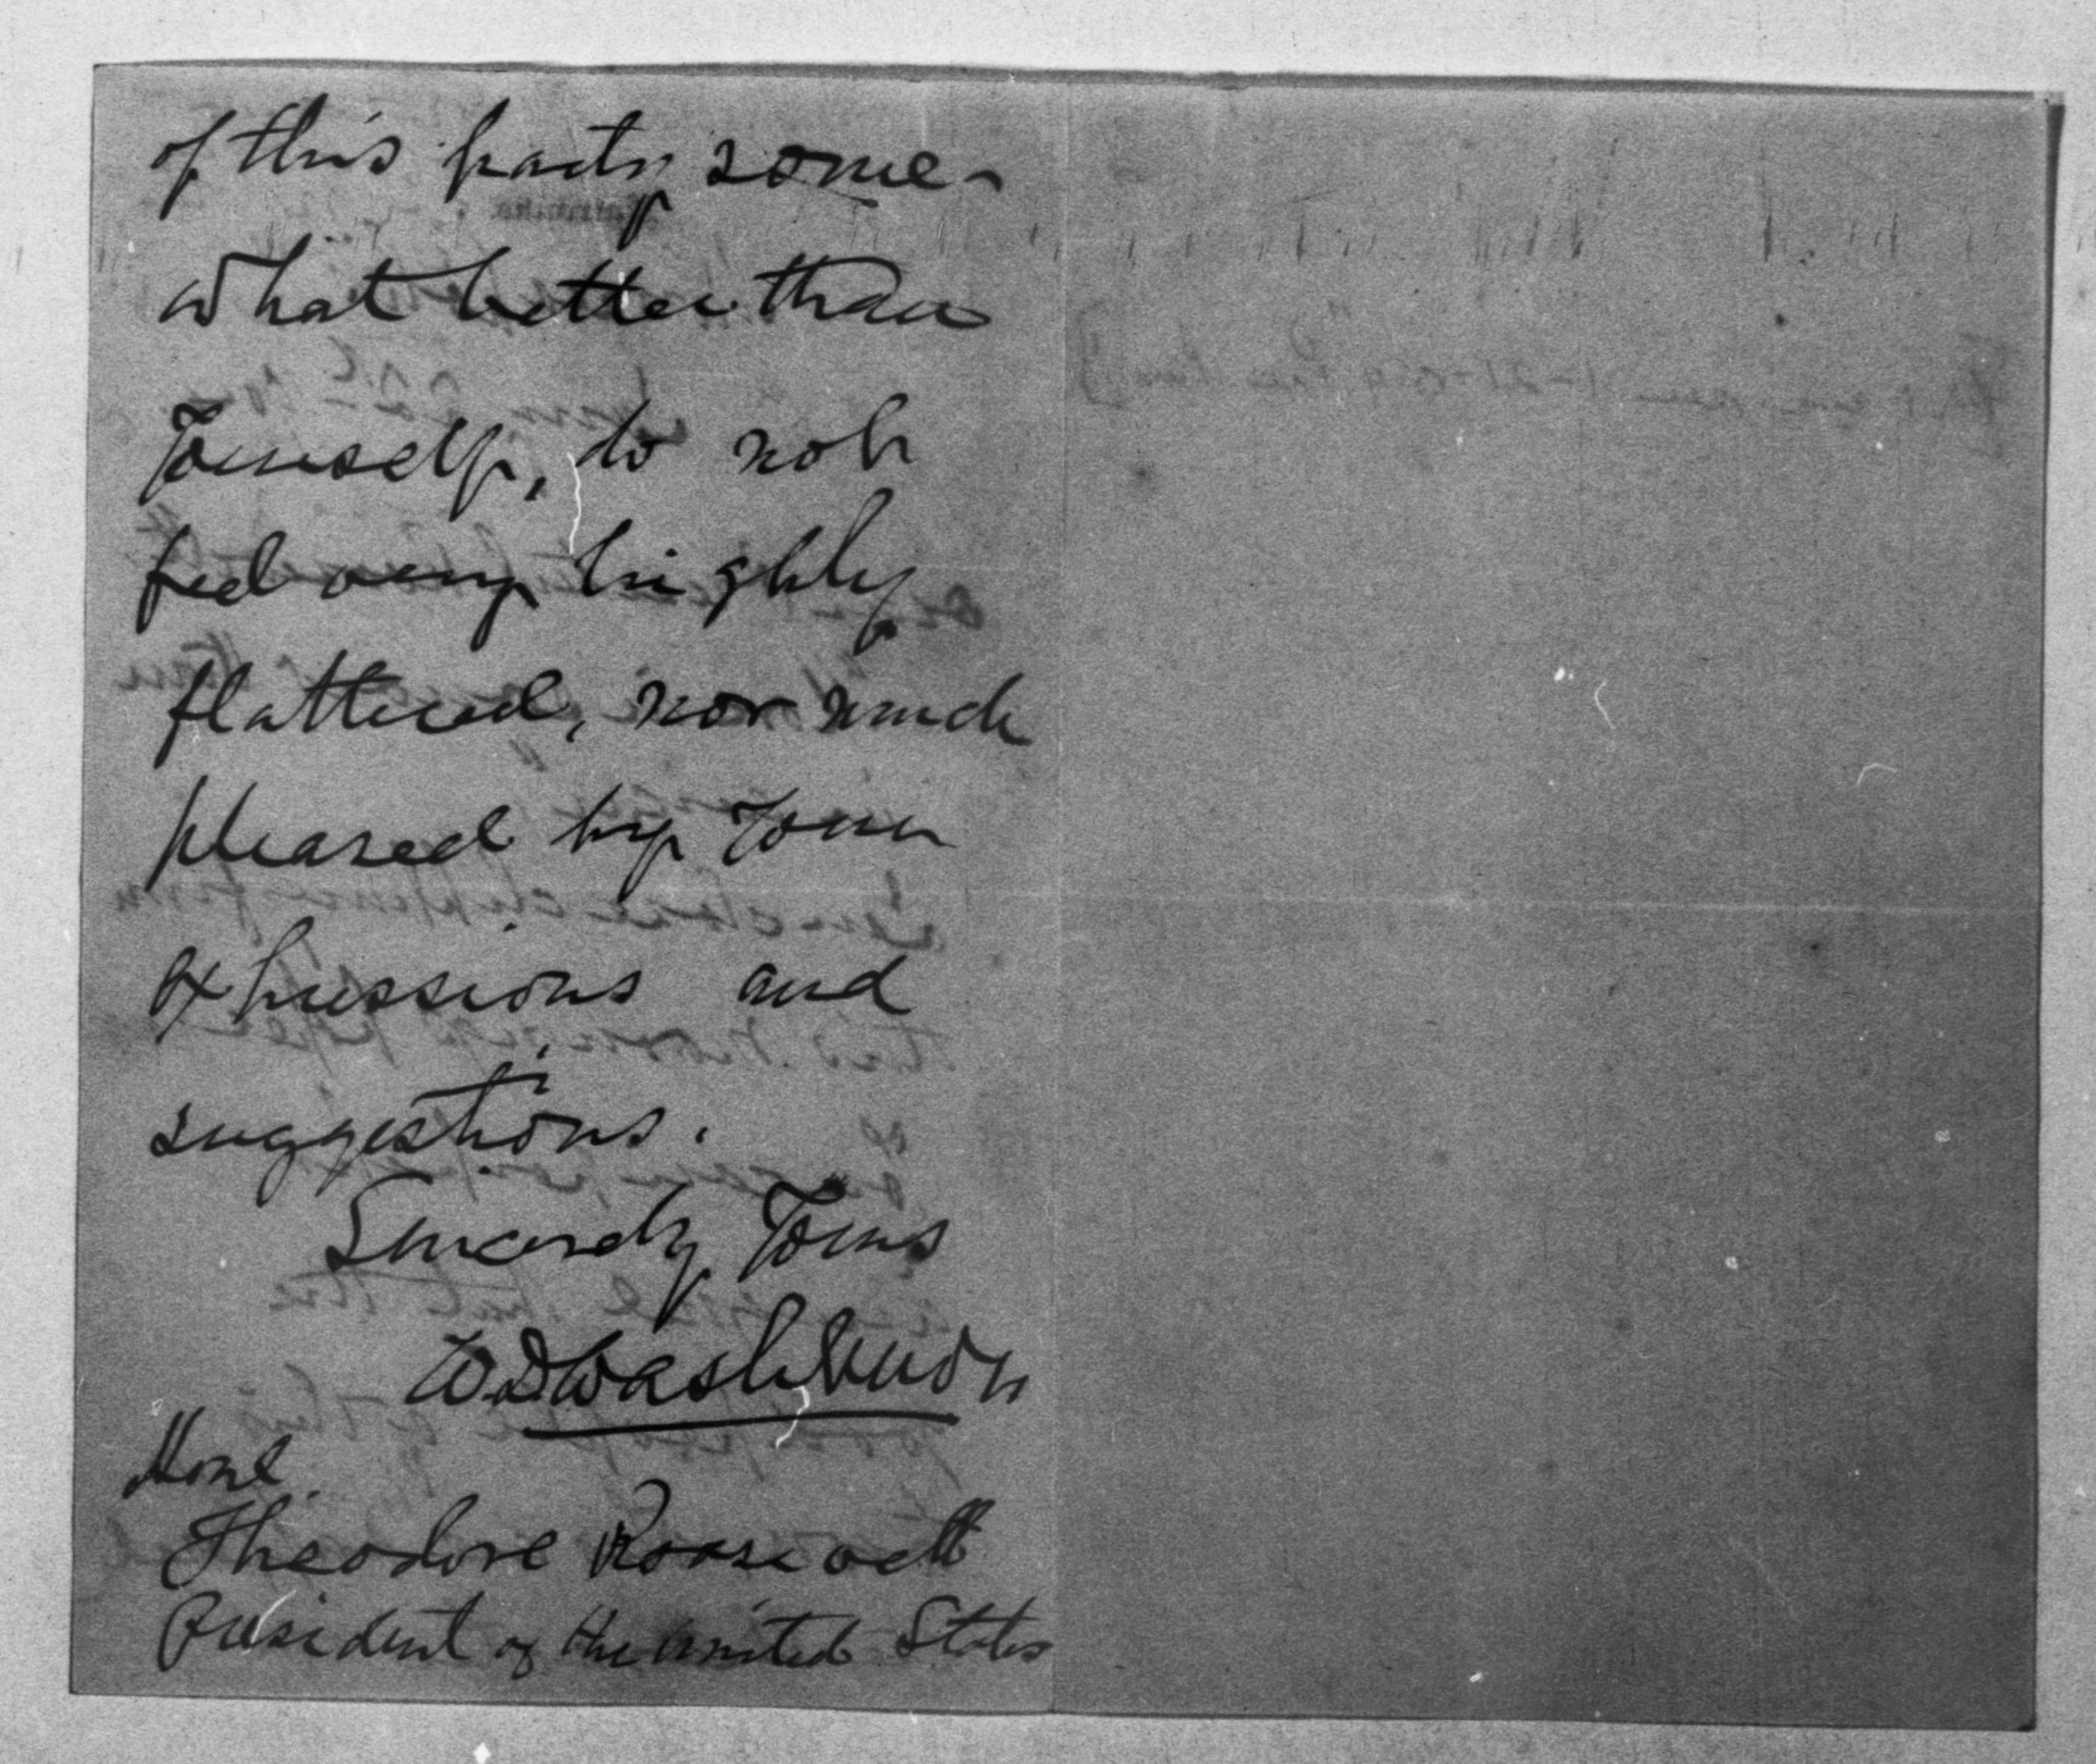 of this party some-
what better than
Yourself, do not
feel very highly
flattered, nor much
pleased by Your
expressions and
suggestions.
Sincerely Yours
W.D. Washburn
Honl.
Theodore Roosevelt
President of the United States